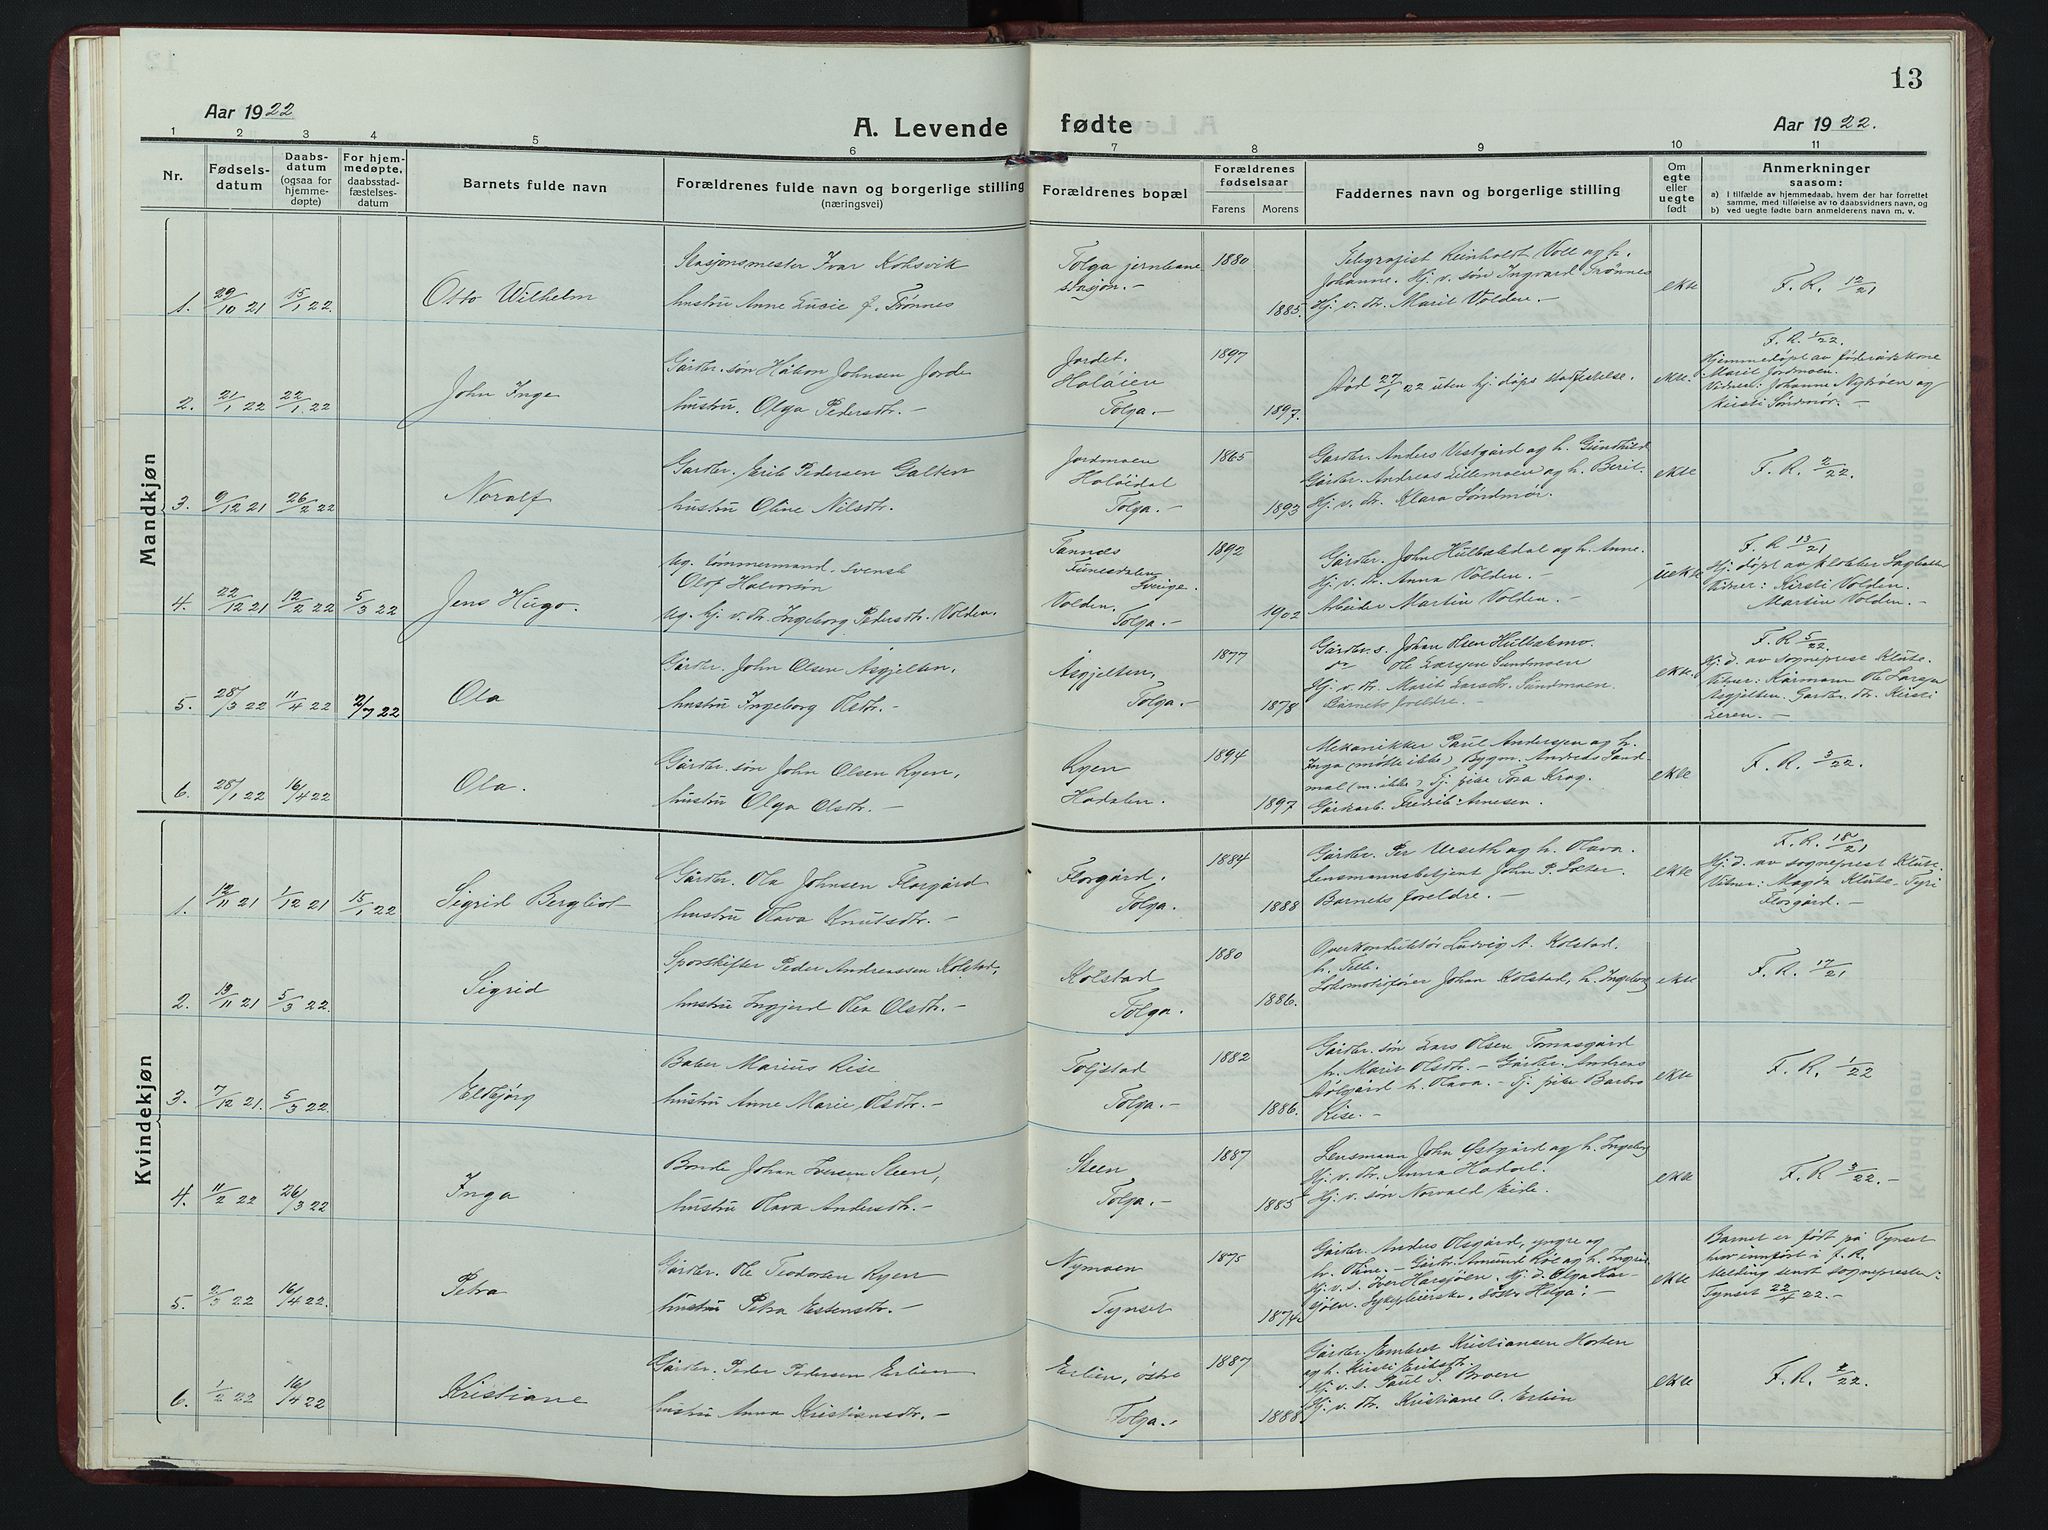 13
Aar 1922
A. Levende fødte
Aar 1922.
1 2 3 4 5 6 7 8 9 10 11
Nr.
Fødsels-
datum
Daabs-
datum
(ogsaa for
hjemme-
døpte)
For hjem-
medøpte,
daabsstad-
fæstelses-
datum
Barnets fulde navn
Forældrenes fulde navn og borgerlige stilling
(næringsvei)
Forældrenes bopæl
Forældrenes
fødselsaar
Farens Morens
Faddernes navn og borgerlige stilling
Om
egte
eller
uegte
født
Anmerkninger
saasom:
a) I tilfælde av hjemmedaab, hvem der har forrettet
samme, med tilføielse av to daabsvidners navn, og
b) ved uegte fødte barn anmelderens navn m. v.
Mandkjøn
1. 29/10 21 15/1 22. Otto Wilhelm
Stasjonsmester Ivar Kohsvik
hustru Anne Lucie f. Trønnes
Tolga jernbane
stasjon.-
1880 1885.
Telegrafist Reinholdt Voll og h.
Johanne. Hj. v. søn Ingvard Trønnes
Hj. v. dr. Marit Volden.-
ekte
F. R. 12/21
2. 21/1 22 22/1 22 John Inge
Gårdbr. søn Håkon Johnsen Jorde
hustru. Olga Pedersdtr.-
Jordet.
Holøien
Tolga.-
1897 1897.
Død 27/1 22 uten hj. døps stadfestelse.
ekte.
F. R. 1/22.
Hjemmedøpt av føderådskone
Marit Jordmoen.
Vidner: Johanne Nykøen og
Kirsti Søndmør.-
3. 9/12 21 26/2 22 Noralf
Gårdbr. Erik Pedersen Galten
hustru Oline Nilsdtr.
Jordmoen
Holøidal
Tolga.-
1865 1893
Gårdbr. Anders Vestgård og h. Gunhild
Gårdbr. Andreas Lillemoen og h. Berit.
Hj. v. dtr. Klara Søndmør.
ekte
F. R. 2/22.
4. 22/12 21 12/2 22 5/3 22 Jens Hugo.
Ug. tømmermand. svensk
Olof Halvorsøn
Ug. hj. v. dtr. Ingeborg Pedersdtr. Volden.
Tännäs
Funesdalen
Sverige.
Volden.
Tolga.-
1892 1902
Gårdbr. John Hulbækdal og h. Anne.
Hj. v. dtr. Anna Volden.-
Arbeider Martin Volden.-
uekte
F. R. 13/21
Hj. døpt av klokker
Vitner: Kirsti Volden.
Martin Volden.-
5. 28/3 22 11/4 22 2/7 22 Ola
Gårdbr. John Olsen Åsgjelten.
hustru Ingeborg Olsdtr.-
Åsgjelten,
Tolga.-
1877 1878
Gårdbr. s. Johan Olsen Hulbækmo.
do Ole Larsen Sundmoen
Hj. v. dtr. Marit Larsdtr. Sundmoen.
Barnets foreldre.-
ekte.
F. R. 5/22.
Hj. d. av Sogneprest Klüte.
Vitner: Kårmann Ole Larsen
Åsgjelten. Gårdbr. dtr. Kirsti
Leren.-
6. 28/1 22 16/4 22 Ola.
Gårdbr. søn John Olsen Ryen,
hustru Olga Olsdtr.-
Ryen
Hodalen.
1894 1897
Mekanikker Paul Andersen og h.
Inga (møtte ikke) Bygm. Anders Sand
mal (m. ikke) Tj. pike Tora Krog.
Gårkarb. Fredrik Arnesen.
ekte
F. R. 3/22.
Kvindekjøn
1. 12/11 21 1/12 21 15/1 22 Sigrid Bergliot
Gårdbr. Ola Johnsen Florgård
hustru Olava Knutsdtr.-
Florgård.
Tolga.
1884 1888
Gårdbr. Per Urseth og h. Olava.
Lensmannsbetjent John P. Sæter.
Barnets foreldre.-
ekte
F. R. 18/21
Hj. d. av sogneprest Klüte.
Vitner: Magda Klüte- Tyri
Florgård.-
2. 19/11 21 5/3 22. Sigrid
Sporskifter Peder Andreassen Kolstad,
hustru Ingjerd Olea Olsdtr.-
Kolstad
Tolga.
1880 1886.
Overkonduktør Ludvig A. Kolstad.
h. Tilla.
Lokomotivfører Johan Kolstad, h. Ingeborg
ekte
F. R. 17/21
3. 7/12 21. 5/3 22. Eldbjörg
Baker Marius Rise
hustru Anne Marie Olsdtr.-
Toljstad
Tolga.-
1882 1886.
Gårdbr. søn Lars Olsen Tomasgård
h. Marit Olsdtr.- Gårdbr. Andreas
Dølgård h. Olava.- Tj. pike Barbro
Rise.-
ekte
F. R. 1/22
4. 11/2 22 26/3 22 Inga
Bonde Johan Iversen Steen,
hustru Olava Andersdtr.-
Steen
Tolga.-
1887 1885
Lensmann John Østgård og h. Ingeborg
Hj. v. dtr. Anna Hodal.
Hj. v. søn Norvald Eide.
ekte
F. R 3/22.-
5. 2/3 22 16/4 22. Petra
Gårdbr. Ole Teodorsen Ryen
hustru Petra Estensdtr.-
Nymoen
Tynset
1875 1874
Gårdbr. Anders Olsgård, yngre og
h. Oline.- Gårdbr. Amund Røe og h. Ingrid
Hj. v. s. Iver Harsjøen. Hj. d. Olga Har-
sjøen. Sykepleierske, søster Helga.-
ekte
Barnet er født på Tynset
hvor innført i f. R.
Melding sendt sognepresten:
Tynset 22/4 22.-
6. 1/2 22 16/4 22 Kristiane
Gårdbr. Peder Pedersen Erlien
hustru Anna Kristiansdtr.-
Erlien, østre
Tolga.-
1887 1888
Gårdbr. Embret Kristiansen Horten
og h. Kirsti Eriksdtr.
Hj. v. s. Paul S. Broen
Hj. v. dtr. Kristiane O. Erlien
ekte
F. R. 2/22.